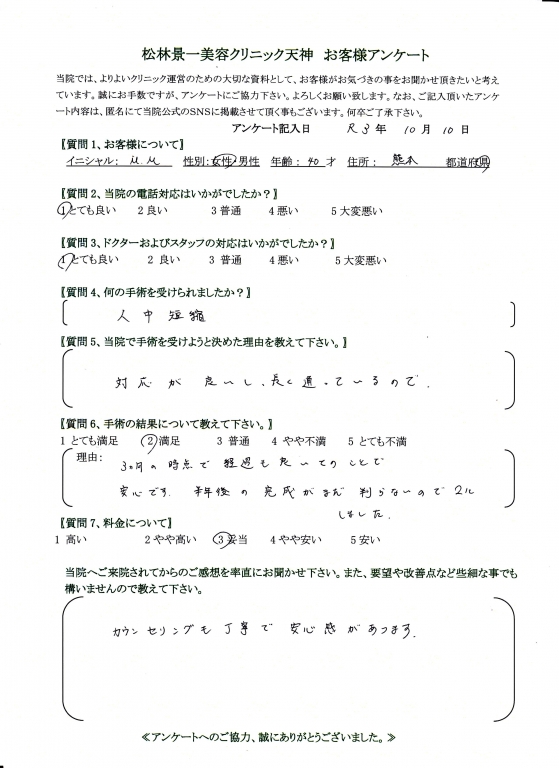 松林景一美容クリニック天神　お客様アンケート
当院では、よりよいクリニック運営のための大切な資料として、お客様がお気づきの事をお聞かせ頂きたいと考え
ています。誠にお手数ですが、アンケートにご協力下さい。よろしくお願い致します。なお、ご記入頂いたアンケ
ート内容は、匿名にて当院公式のSNSに掲載させて頂く事もございます。何卒ご了承下さい。
アンケート記入日　R 3 年　10 月　10 日
【質問 1、お客様について】
イニシャル： M.M　性別：女性・男性　年齢： 40 才　住所： 熊本　都道府県
【質問 2、当院の電話対応はいかがでしたか？】
1 とても良い　2 良い　3 普通　4 悪い　5 大変悪い
【質問 3、ドクターおよびスタッフの対応はいかがでしたか？】
1 とても良い　2 良い　3 普通　4 悪い　5 大変悪い
【質問 4、何の手術を受けられましたか？】
人中短縮
【質問 5、当院で手術を受けようと決めた理由を教えて下さい。】
対応が良いし、長く通っているので.
【質問 6、手術の結果について教えて下さい。】
1 とても満足　2 満足　3 普通　4 やや不満　5 とても不満
理由：
3ヶ月の時点で経過も良いとのことで
安心です. 半年後の完成がまだ判らないので2に
しました.
【質問 7、料金について】
1 高い　2 やや高い　3 妥当　4 やや安い　5 安い
当院へご来院されてからのご感想を率直にお聞かせ下さい。また、要望や改善点など些細な事でも
構いませんので教えて下さい。
カウンセリングも丁寧で安心感があります.
≪アンケートへのご協力、誠にありがとうございました。≫